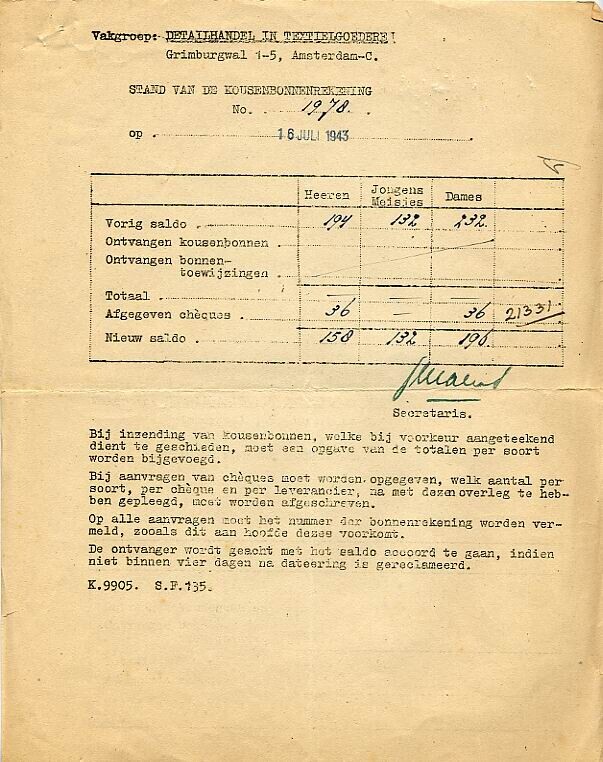 Vakgroep: DETAILHANDEL IN TEXTIELGOEDEREN
Grimburgwal 1-5, Amsterdam-C.
STAND VAN DE KOUSENBONNENREKENING
No. 1978.
op 16 JULI 1943
Heeren Jongens Meisjes Dames
Vorig saldo 194 132 232
Ontvangen kousenbonnen
Ontvangen bonnen-
toewijzingen
Totaal
Afgegeven chèques 36 — 36 21331
Nieuw saldo 158 132 196
Secretaris.
Bij inzending van kousenbonnen, welke bij voorkeur aangeteekend
dient te geschieden, moet een opgave van de totalen per soort
worden bijgevoegd.
Bij aanvragen van chèques moet worden opgegeven, welk aantal per
soort, per chèque en per leverancier, na met dezen overleg te heb-
ben gepleegd, moet worden afgeschreven.
Op alle aanvragen moet het nummer der bonnenrekening worden ver-
meld, zooals dit aan hoofde dezes voorkomt.
De ontvanger wordt geacht met het saldo accoord te gaan, indien
niet binnen vier dagen na dateering is gereclameerd.
K.9905. S.F.135.